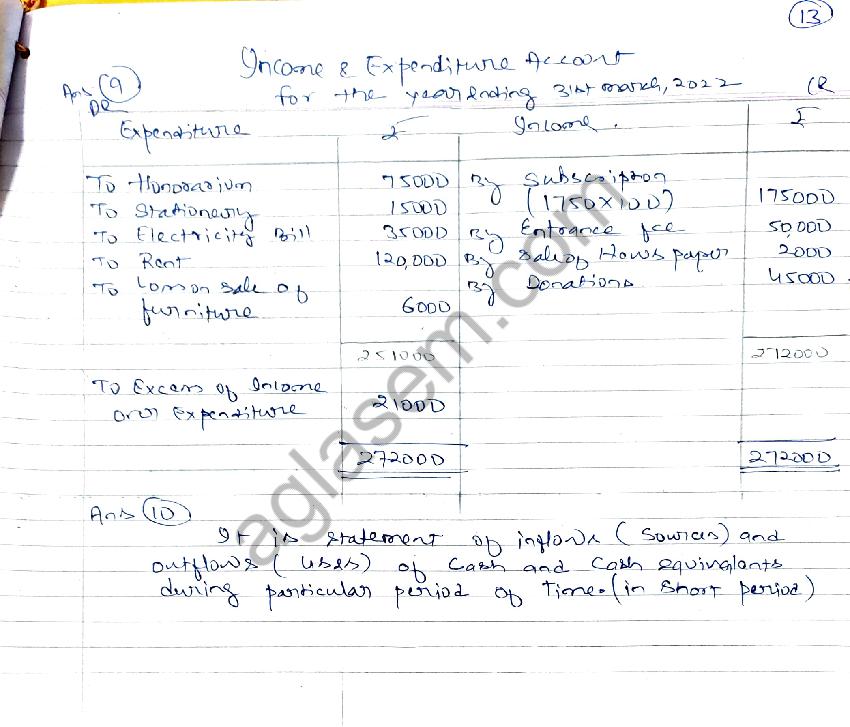 13
Income & Expenditure Account
Ans 9
for the year ending 31st march, 2022
DR
CR
Expenditure ₹ Income. ₹
To Honorarium 75000 By Subscription
(1750×100) 175000
To Stationery 15000
To Electricity Bill 35000 By Entrance fee 50,000
To Rent 120,000 By Sale of News paper 2000
To Loss on sale of By Donations 45000
furniture 6000
251000 272000
To Excess of Income
over Expenditure 21000
272000 272000
Ans 10
It is statement of inflows (sources) and
outflows (uses) of cash and cash equivalents
during particular period of Time. (in short period)
aglasem.com